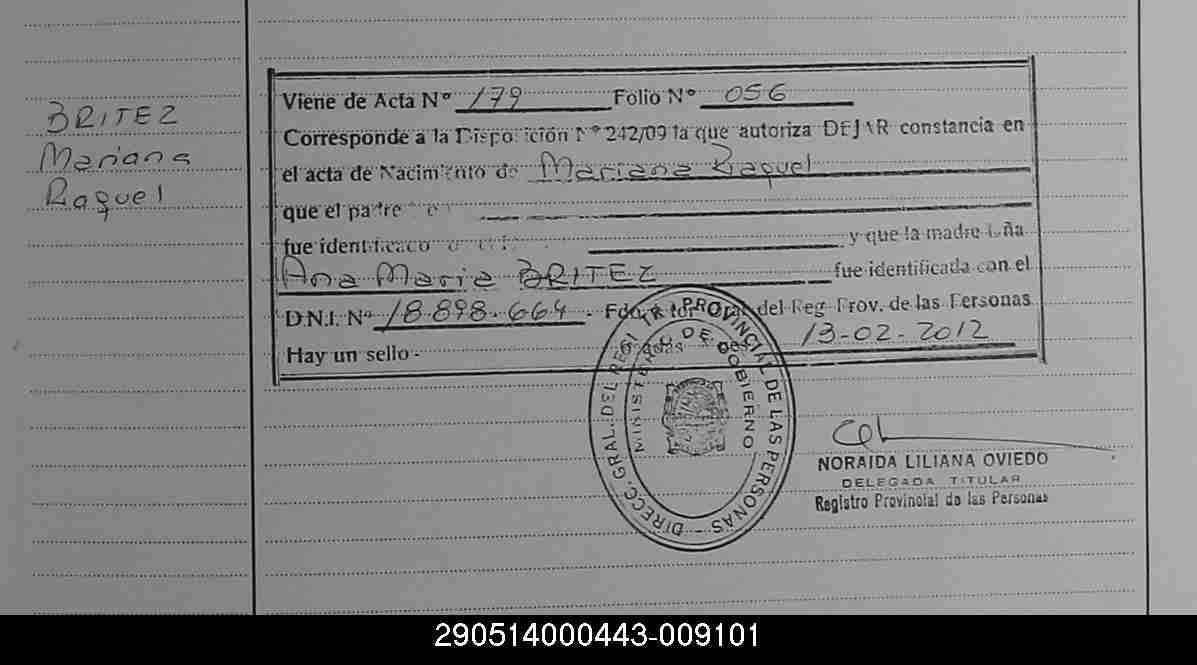 BRITEZ
Mariana
Raquel
Viene de Acta Nº 179 Folio Nº 056
Corresponde a la Disposición Nº 242/09 la que autoriza DEJAR constancia en
el acta de Nacimiento de Mariana Raquel
que el padre
fue identificado y que la madre Dña
Ana Maria BRITEZ fue identificada con el
D.N.I. Nº 18.898.664. del Reg. Prov. de las Personas
Hay un sello - 13-02-2012
DIRECC. GRAL. DEL REGISTRO PROVINCIAL DE LAS PERSONAS
MINISTERIO DE GOBIERNO
NORAIDA LILIANA OVIEDO
DELEGADA TITULAR
Registro Provincial de las Personas
290514000443-009101